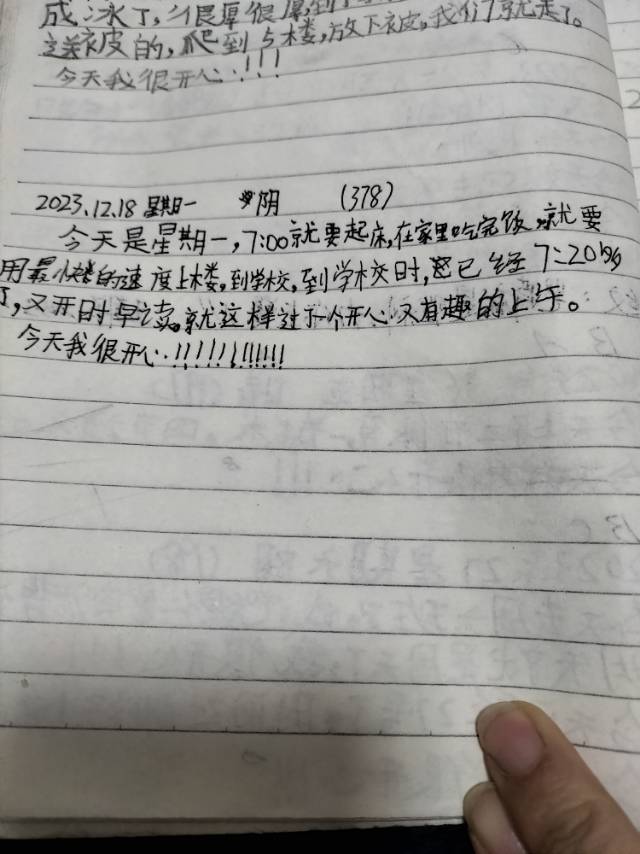 成冰了，很厚很厚，到
送被的，爬到5楼，放下被，我们就走了。
今天我很开心!!!
2023.12.18 星期一 阴 (378)
今天是星期一，7:00就要起床，在家里吃完饭，就要
用最快的速度上楼，到学校，到学校时，已经7:20多
了，又开时早读。就这样过了一个开心又有趣的上午。
今天我很开心!!!!!!!!!!!!!